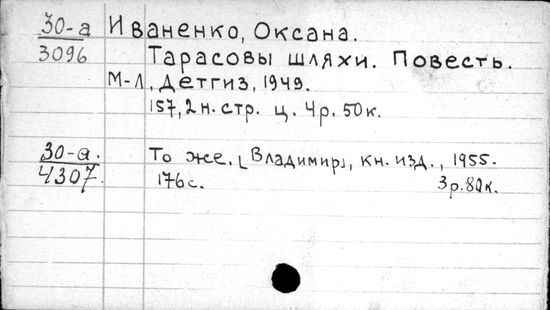 30-а Иваненко, Оксана.
3096 Тарасовы шляхи. Повесть.
М-Л, Детгиз, 1949.
157, 2 н. стр. ц. 4р. 50к.
30-а. То же, [Владимир], кн. изд., 1955.
4307 176с. 3р.80к.